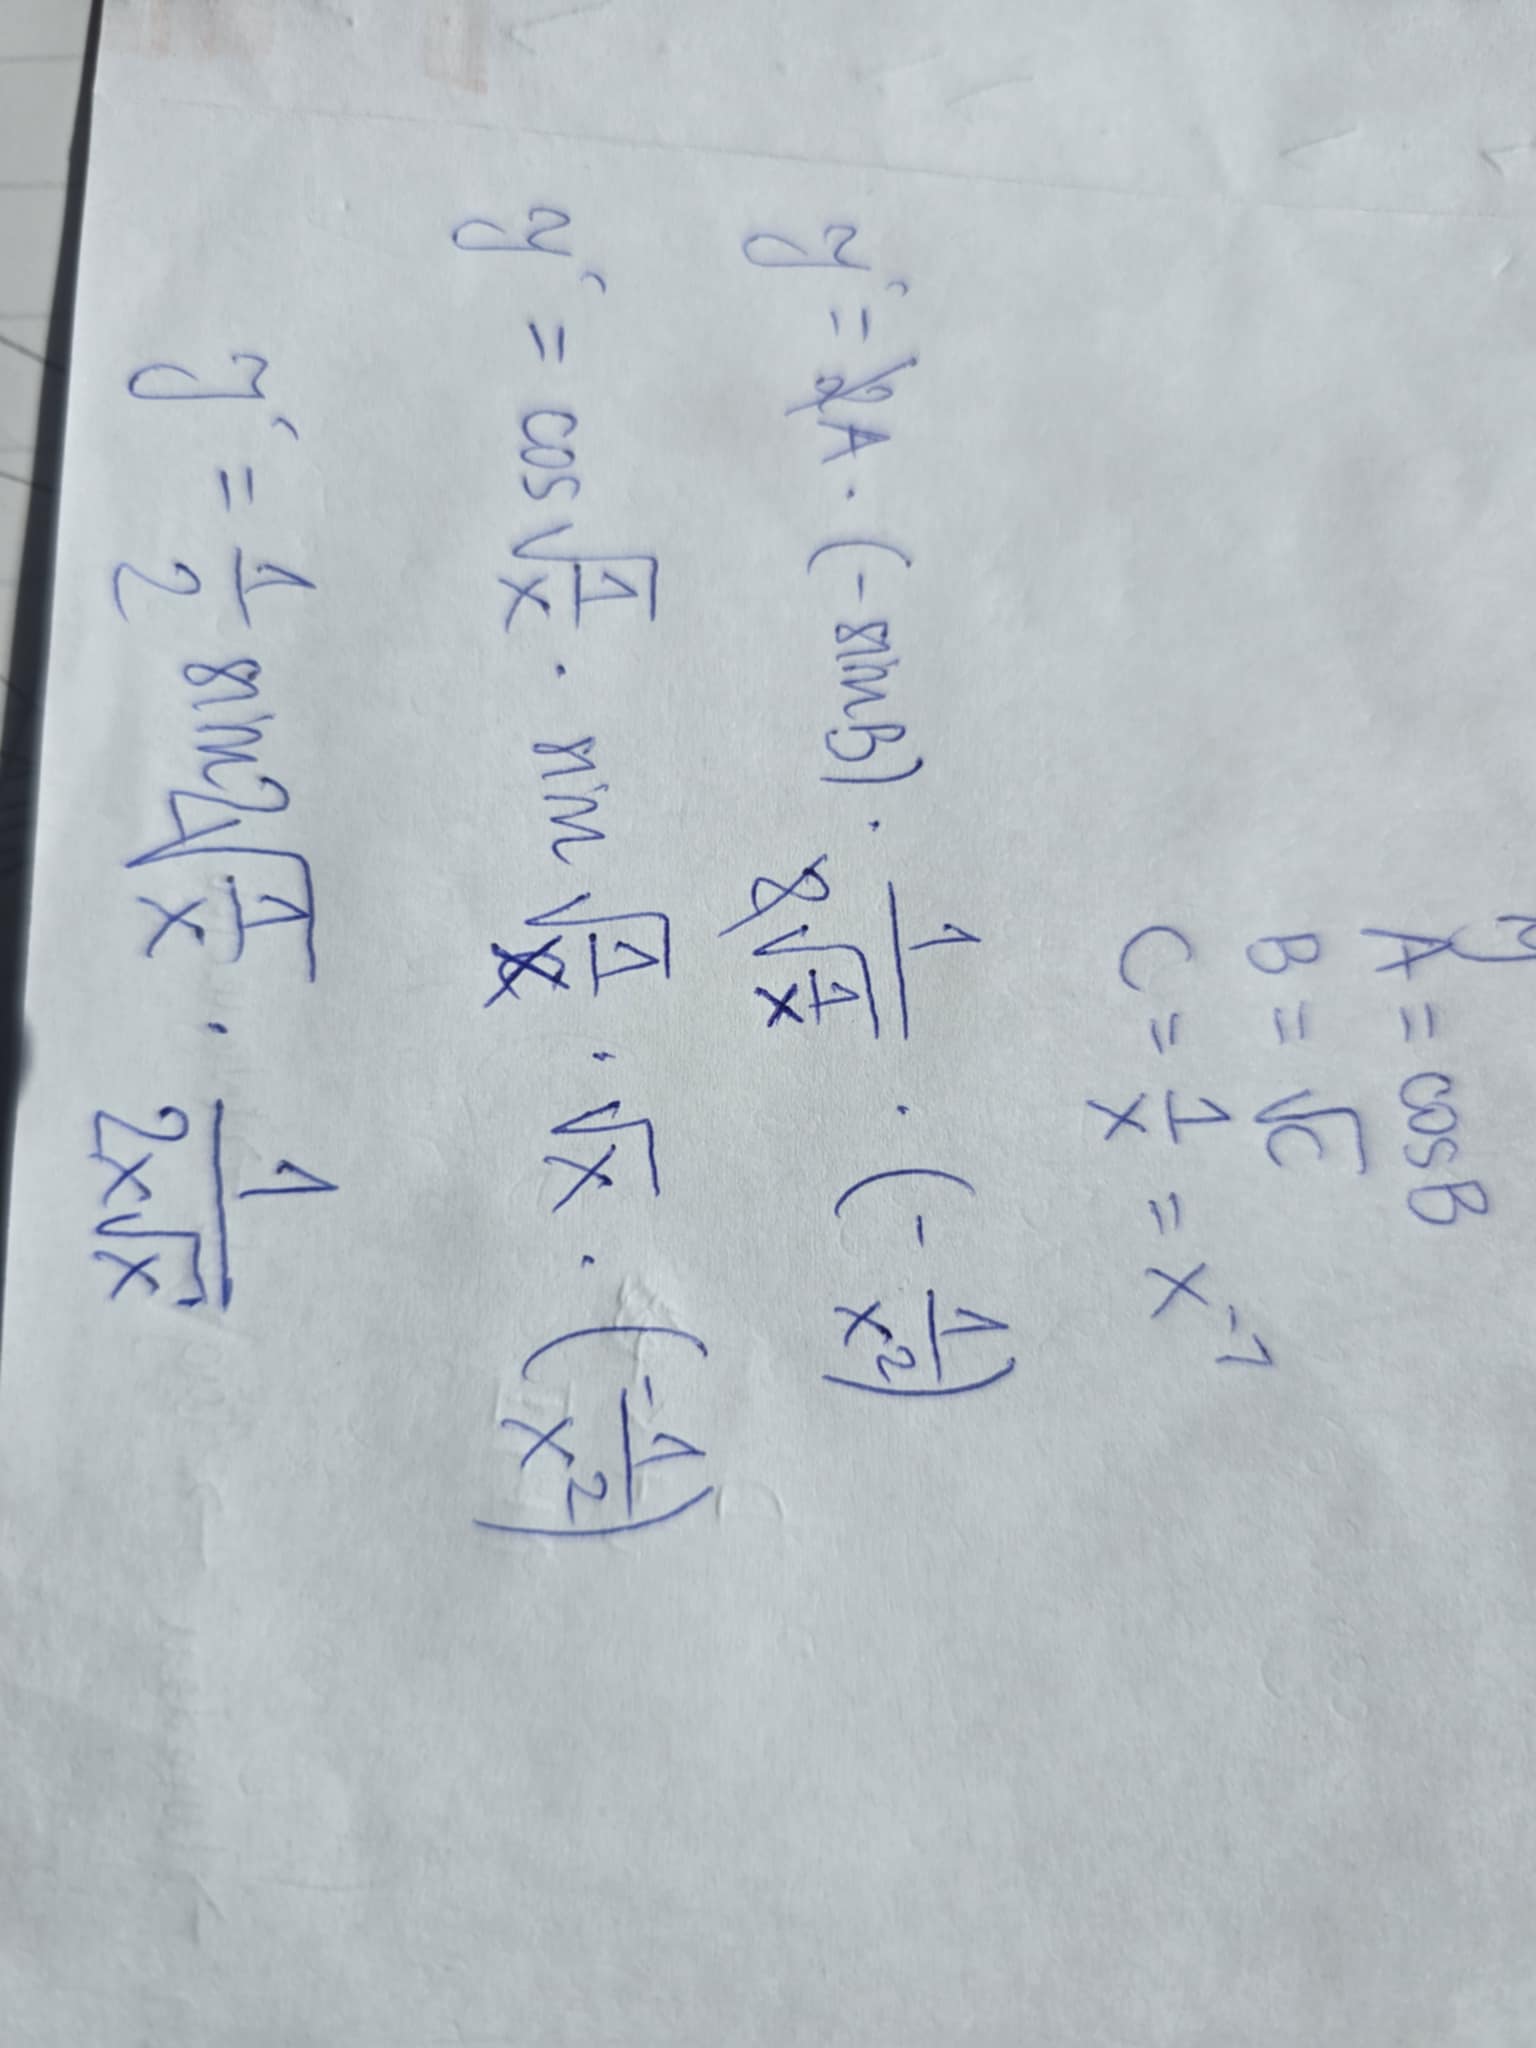 y
A = cosB
B = √C
C = 1/x = x⁻¹
y' = 2A · (-sinB) · 1/(2√(1/x)) · (-1/x²)
y' = cos√(1/x) · sin√(1/x) · √x · (-1/x²)
y' = 1/2 sin2√(1/x) · 1/(2x√x)